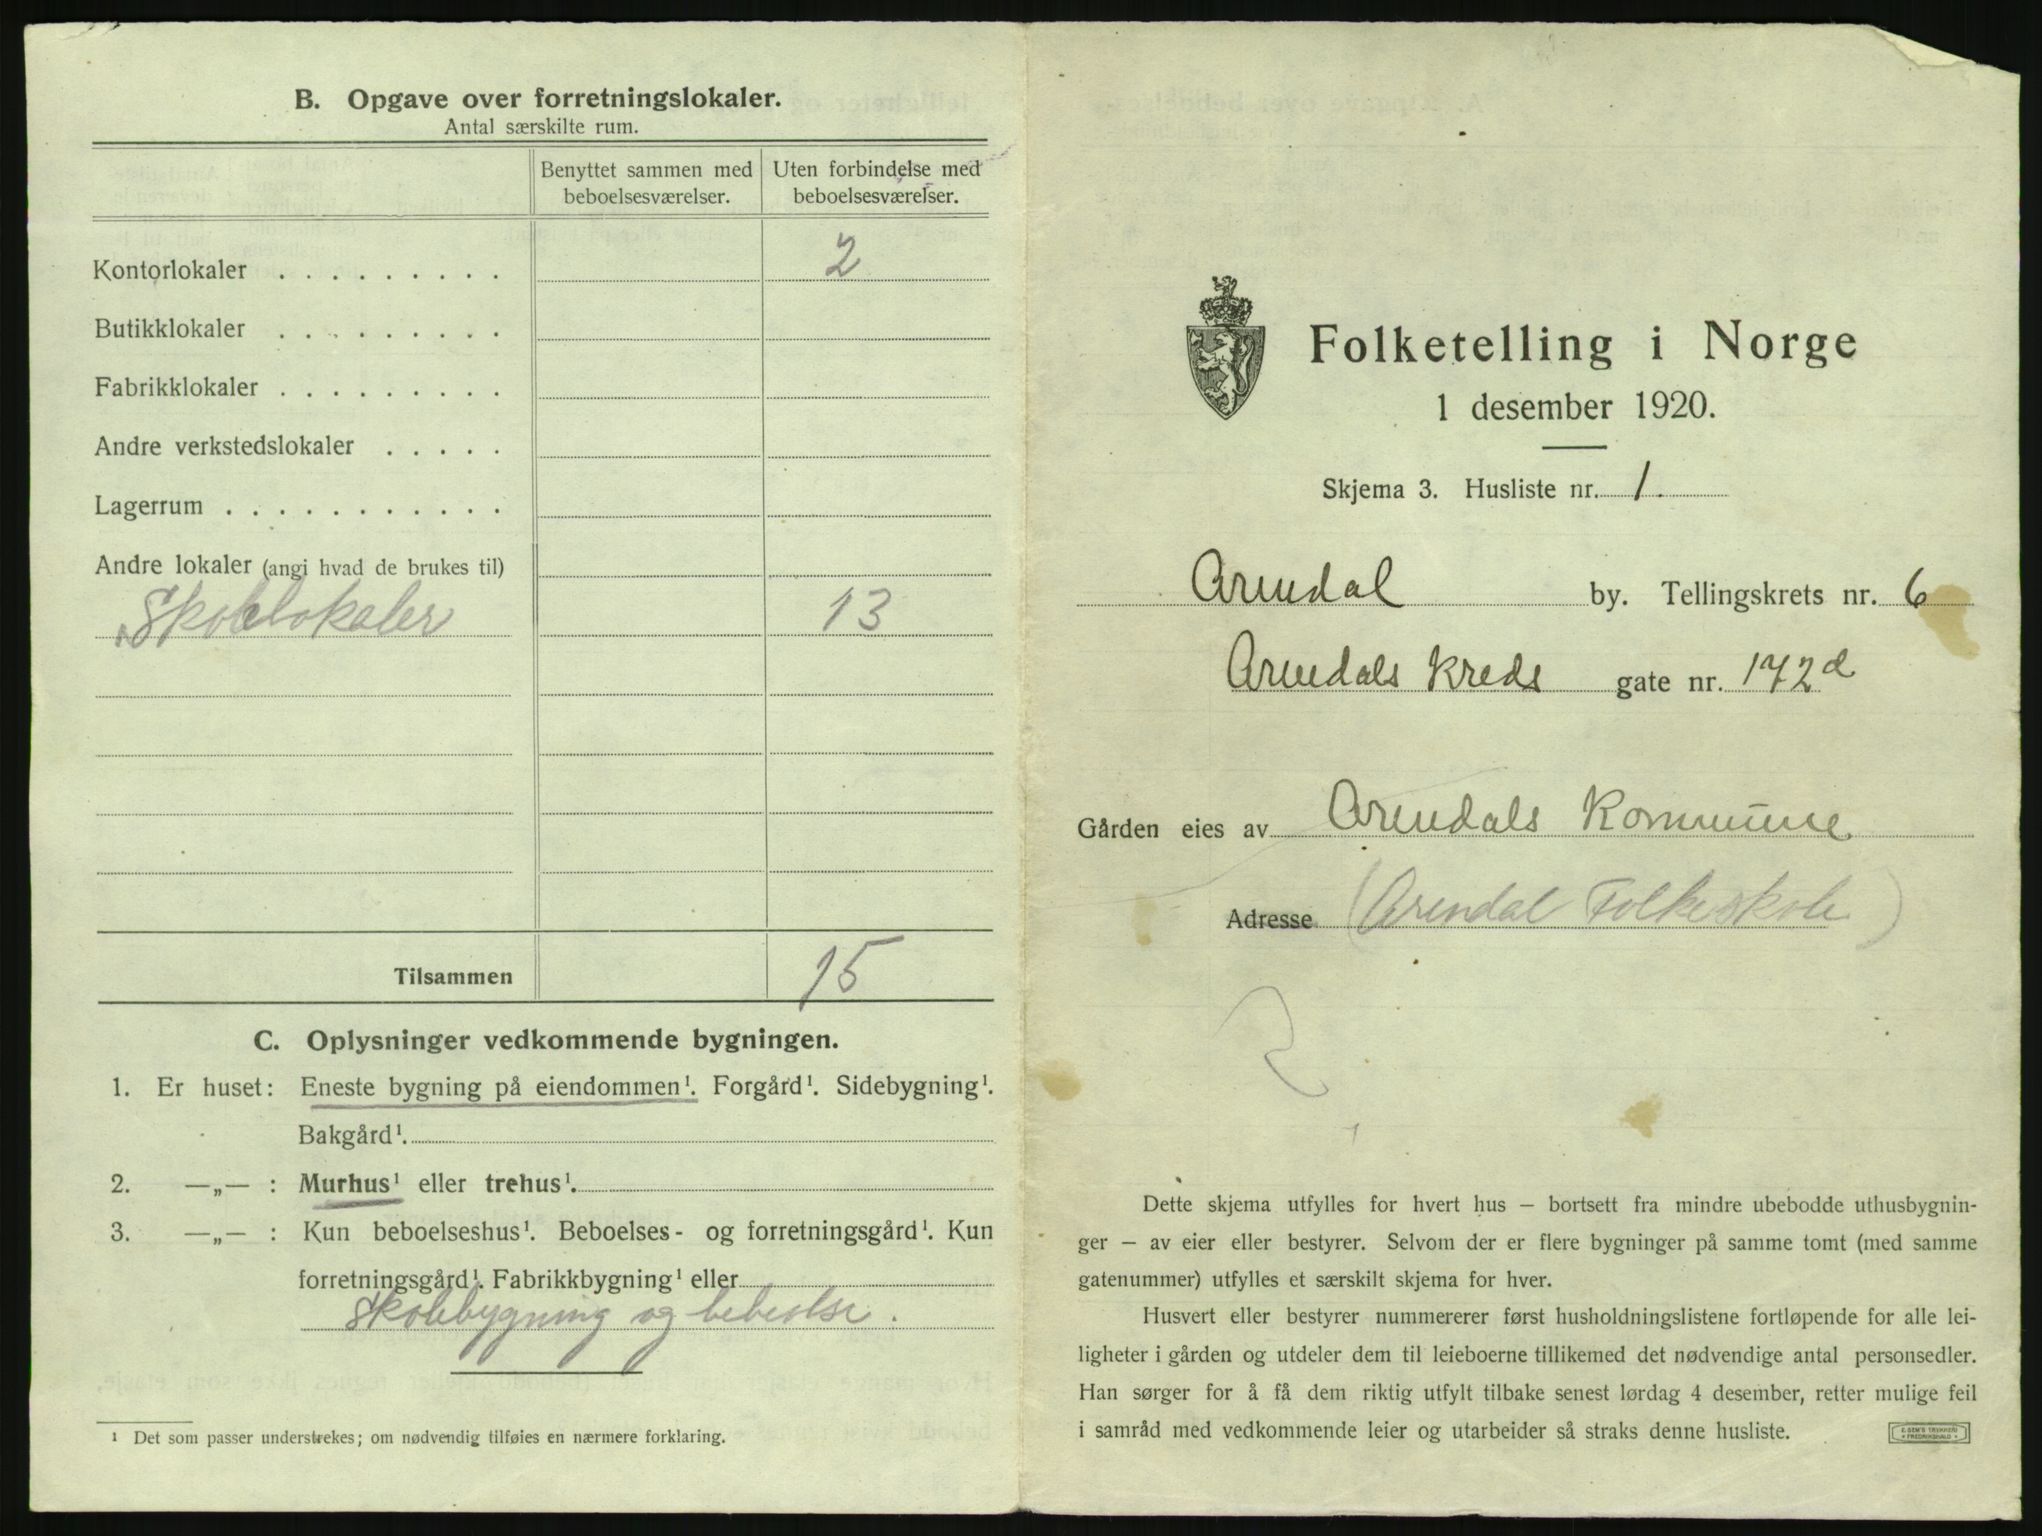 B. Opgave over forretningslokaler.
Antal særskilte rum.
Benyttet sammen med beboelsesværelser.
Uten forbindelse med beboelsesværelser.
Kontorlokaler . . . . . . . . . 2
Butikklokaler . . . . . . . . .
Fabrikklokaler . . . . . . . . .
Andre verkstedslokaler . . . . .
Lagerrum . . . . . . . . . . .
Andre lokaler (angi hvad de brukes til)
Skolelokaler 13
Tilsammen 15
C. Oplysninger vedkommende bygningen.
1. Er huset: Eneste bygning på eiendommen¹. Forgård¹. Sidebygning¹.
Bakgård¹.
2. —„— : Murhus¹ eller trehus¹.
3. —„— : Kun beboelseshus¹. Beboelses- og forretningsgård¹. Kun
forretningsgård¹. Fabrikkbygning¹ eller
Skolebygning og beboelse.
¹ Det som passer understrekes; om nødvendig tilføies en nærmere forklaring.
Folketelling i Norge
1 desember 1920.
Skjema 3. Husliste nr. 1.
Arendal by. Tellingskrets nr. 6
Arendals Kreds gate nr. 172d
Gården eies av Arendals Kommune
Adresse (Arendal Folkeskole)
Dette skjema utfylles for hvert hus – bortsett fra mindre ubebodde uthusbygnin-
ger – av eier eller bestyrer. Selvom der er flere bygninger på samme tomt (med samme
gatenummer) utfylles et særskilt skjema for hver.
Husvert eller bestyrer nummererer først husholdningslistene fortløpende for alle lei-
ligheter i gården og utdeler dem til leieboerne tillikemed det nødvendige antal personsedler.
Han sørger for å få dem riktig utfylt tilbake senest lørdag 4 desember, retter mulige feil
i samråd med vedkommende leier og utarbeider så straks denne husliste.
E. SEM'S TRYKKERI
FREDRIKSHALD